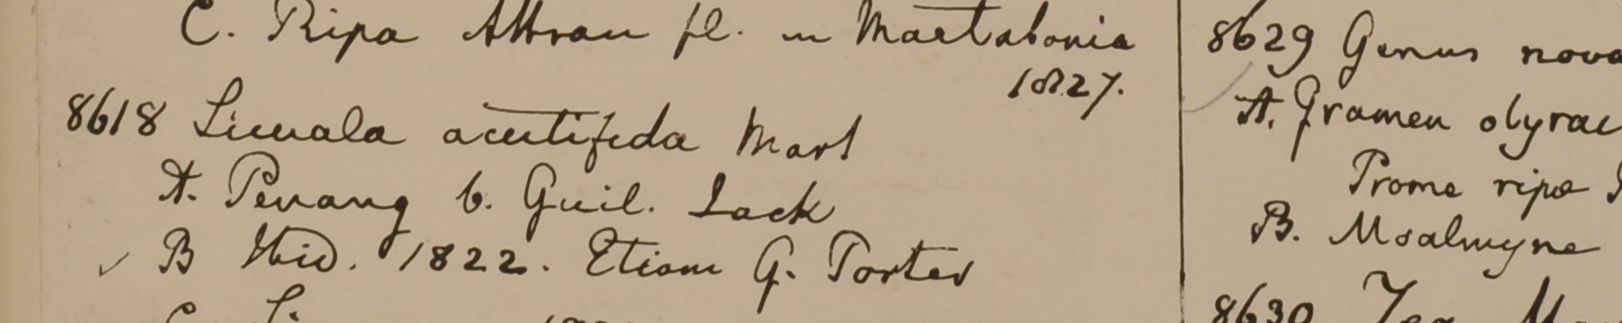 C. Ripa Attran fl. in Martabania
1827.
8618 Licuala acutifida Mart
A. Penang b. Guil. Jack
✓ B Ibid. 1822. Etiam G. Porter
8629 Genus nova
A. Gramen olyrac
Prome ripa
B. Moalmyne
8630 Zea